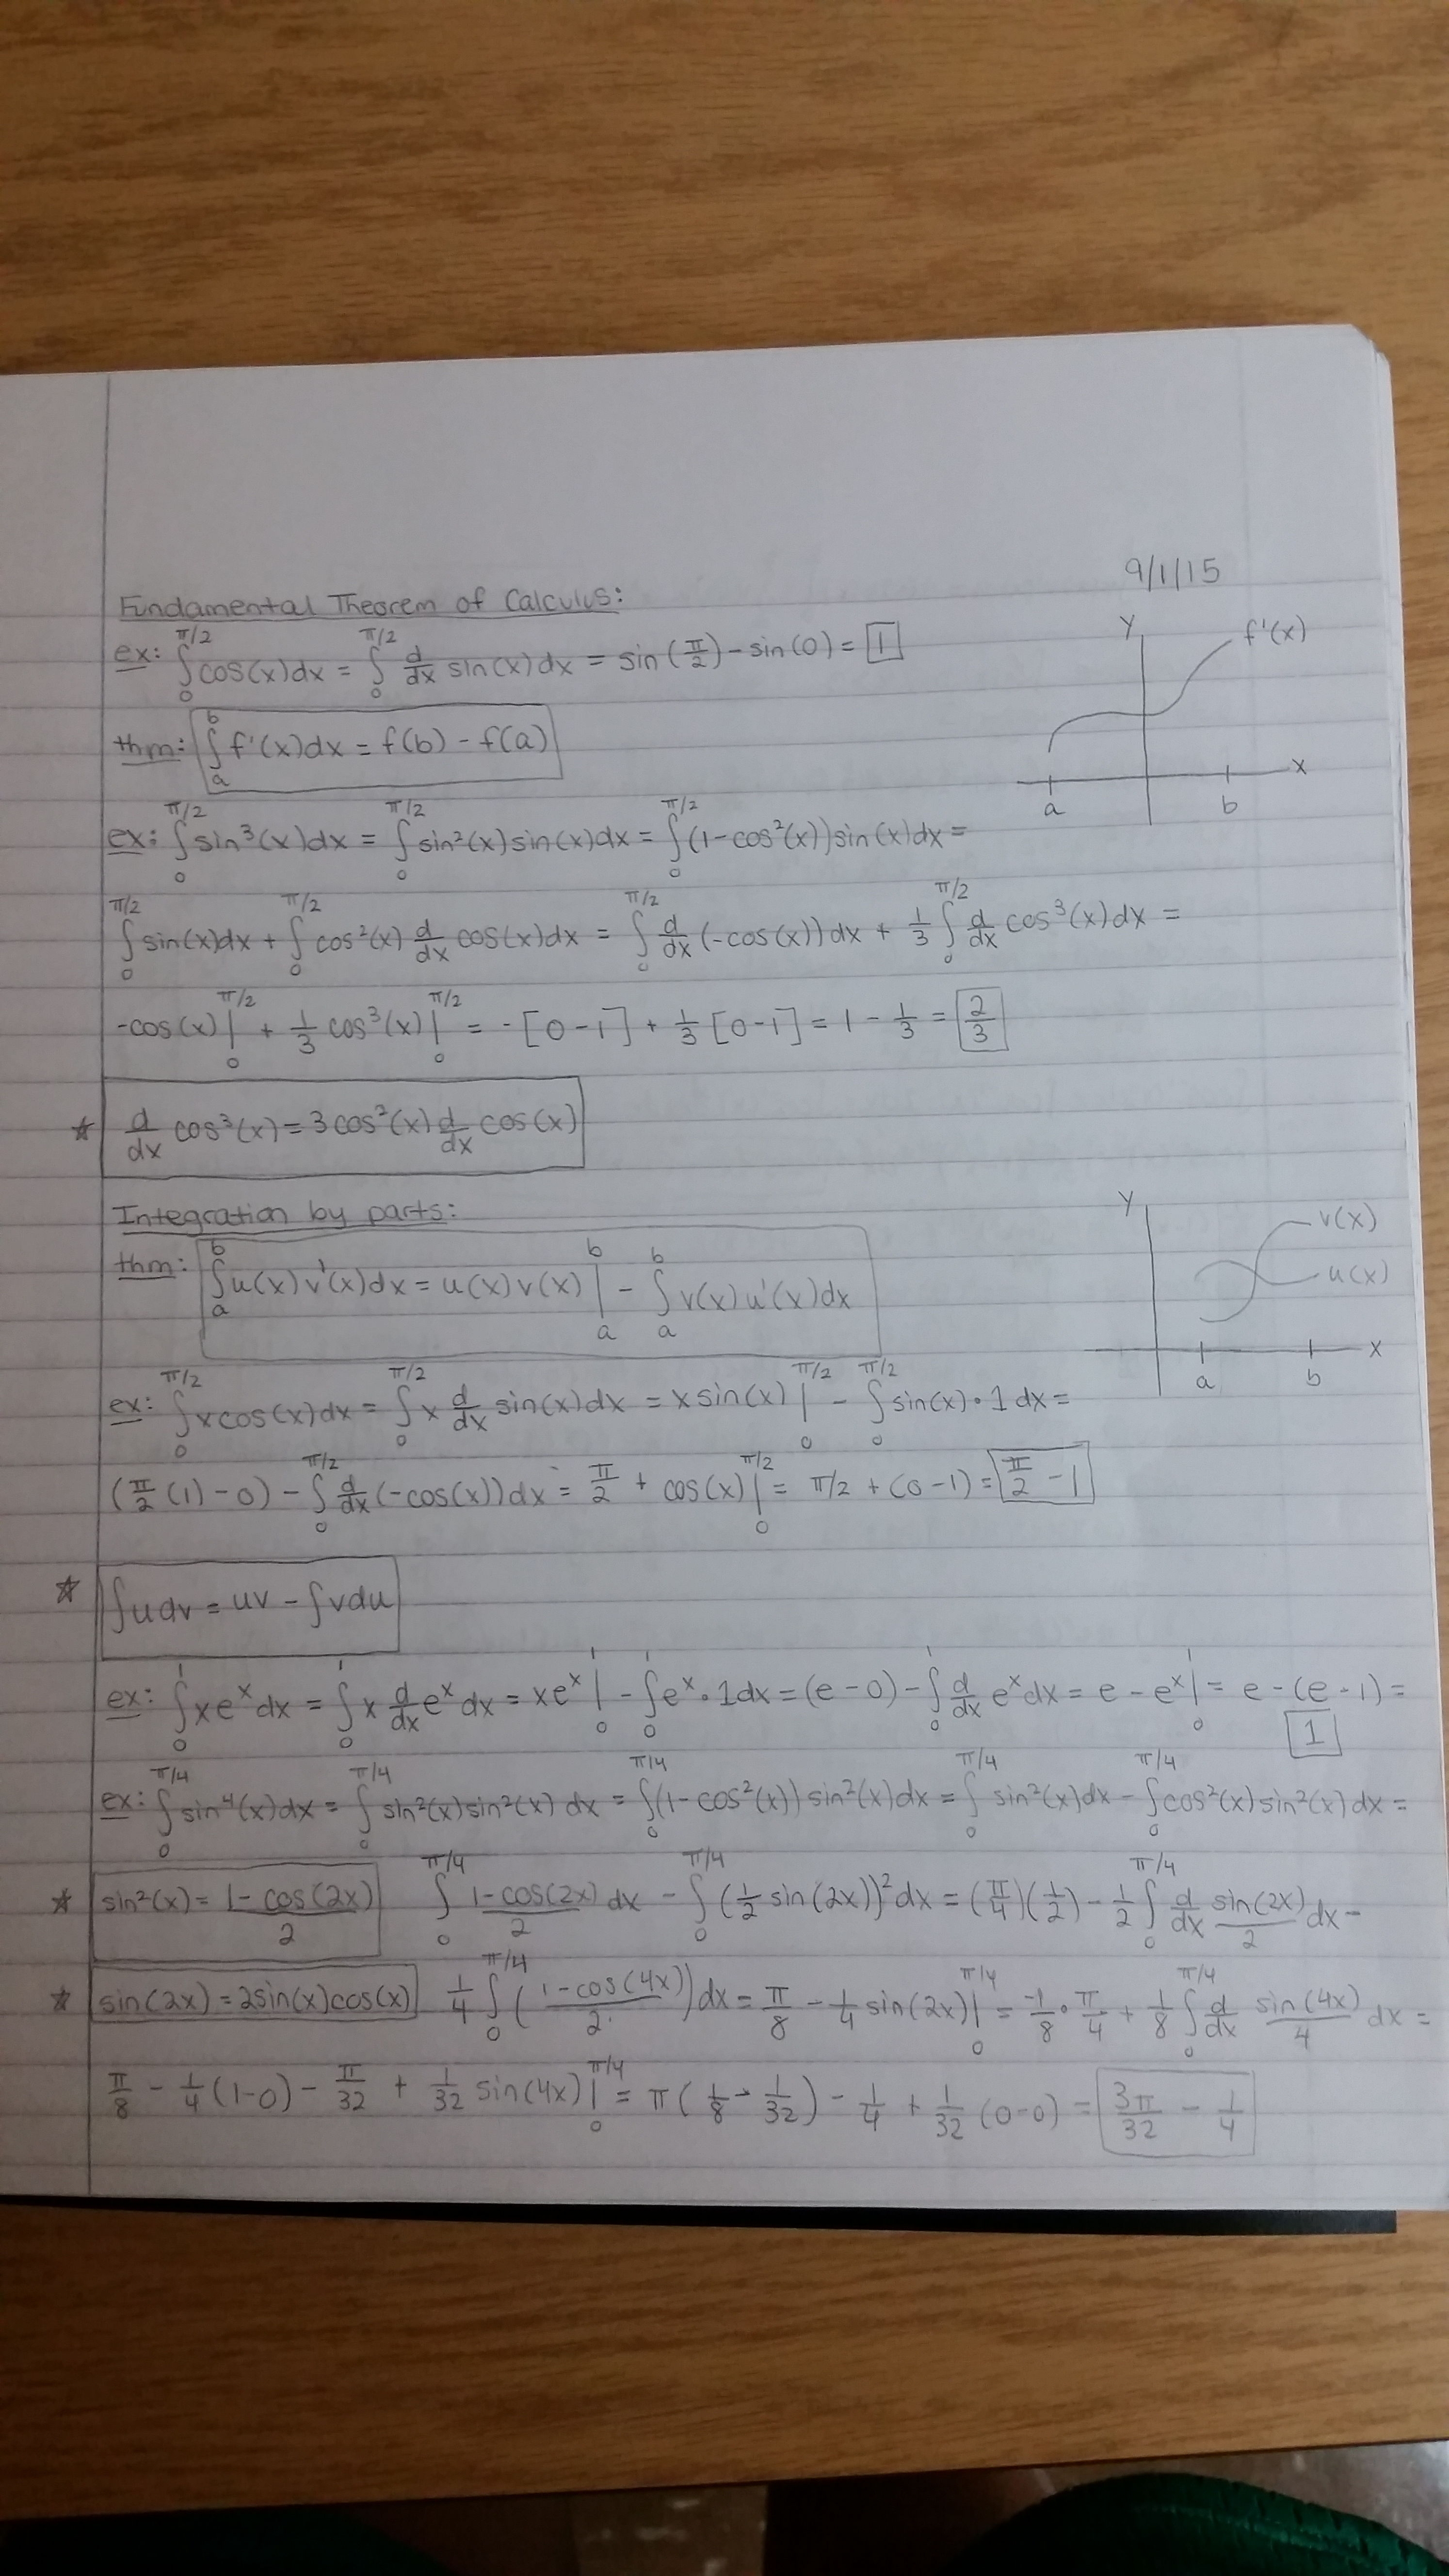 9/1/15
Fundamental Theorem of Calculus:
ex: ∫₀^{π/2} cos(x)dx = ∫₀^{π/2} d/dx sin(x)dx = sin(π/2) - sin(0) = 1
y f'(x)
thm: ∫ₐ^b f'(x)dx = f(b) - f(a)
x
a b
ex: ∫₀^{π/2} sin³(x)dx = ∫₀^{π/2} sin²(x)sin(x)dx = ∫₀^{π/2} (1-cos²(x))sin(x)dx =
∫₀^{π/2} sin(x)dx + ∫₀^{π/2} cos²(x) d/dx cos(x)dx = ∫₀^{π/2} d/dx (-cos(x))dx + 1/3 ∫₀^{π/2} d/dx cos³(x)dx =
-cos(x)|₀^{π/2} + 1/3 cos³(x)|₀^{π/2} = -[0-1] + 1/3 [0-1] = 1 - 1/3 = 2/3
☆ d/dx cos³(x) = 3cos²(x) d/dx cos(x)
Integration by parts:
y v(x)
u(x)
thm: ∫ₐ^b u(x)v'(x)dx = u(x)v(x)|ₐ^b - ∫ₐ^b v(x)u'(x)dx
x
a b
ex: ∫₀^{π/2} xcos(x)dx = ∫₀^{π/2} x d/dx sin(x)dx = xsin(x)|₀^{π/2} - ∫₀^{π/2} sin(x)·1dx =
(π/2 (1) - 0) - ∫₀^{π/2} d/dx (-cos(x))dx = π/2 + cos(x)|₀^{π/2} = π/2 + (0-1) = π/2 - 1
☆ ∫udv = uv - ∫vdu
ex: ∫₀^1 xe^x dx = ∫₀^1 x d/dx e^x dx = xe^x|₀^1 - ∫₀^1 e^x·1dx = (e-0) - ∫₀^1 d/dx e^x dx = e - e^x|₀^1 = e - (e-1) =
1
ex: ∫₀^{π/4} sin⁴(x)dx = ∫₀^{π/4} sin²(x)sin²(x)dx = ∫₀^{π/4} (1-cos²(x))sin²(x)dx = ∫₀^{π/4} sin²(x)dx - ∫₀^{π/4} cos²(x)sin²(x)dx =
☆ sin²(x) = (1-cos(2x))/2 ∫₀^{π/4} (1-cos(2x))/2 dx - ∫₀^{π/4} (1/2 sin(2x))² dx = (π/4)(1/2) - 1/2 ∫₀^{π/4} d/dx sin(2x)/2 dx -
☆ sin(2x) = 2sin(x)cos(x) 1/4 ∫₀^{π/4} ((1-cos(4x))/2)dx = π/8 - 1/4 sin(2x)|₀^{π/4} = -1/8 · π/4 + 1/8 ∫₀^{π/4} d/dx sin(4x)/4 dx =
π/8 - 1/4 (1-0) - π/32 + 1/32 sin(4x)|₀^{π/4} = π(1/8 - 1/32) - 1/4 + 1/32 (0-0) = 3π/32 - 1/4